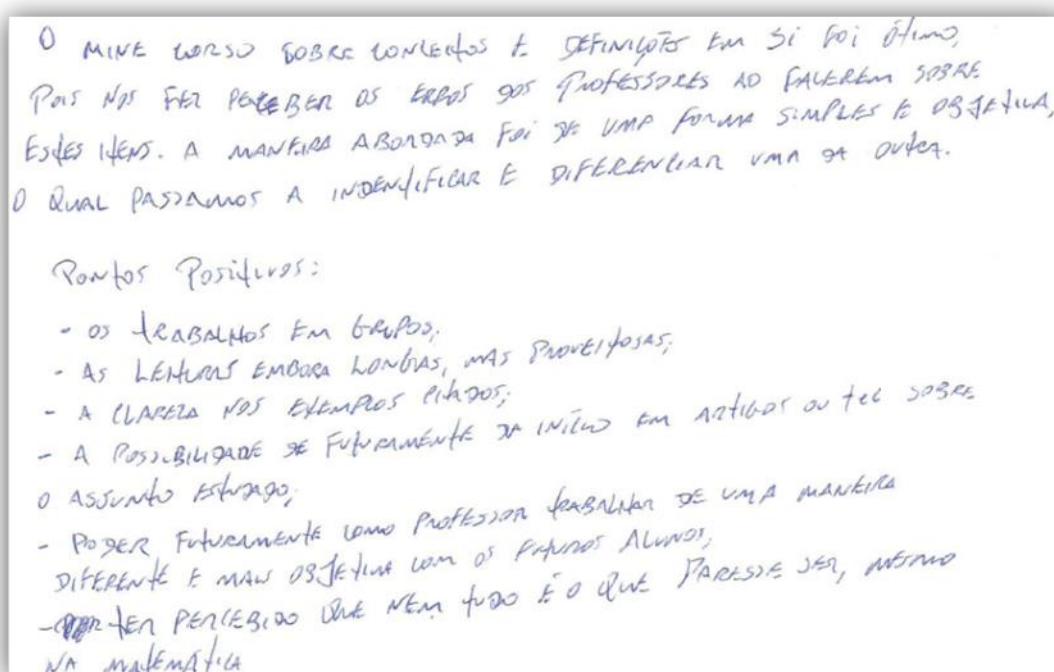 O MINE CURSO SOBRE CONCEITOS E DEFINIÇÕES EM SI FOI ÓTIMO,
POIS NOS FEZ PERCEBER OS ERROS DOS PROFESSORES AO FALEREM SOBRE
ESTES ITENS. A MANEIRA ABORDADA FOI DE UMA FORMA SIMPLES E OBJETIVA,
O QUAL PASSAMOS A INDENTIFICAR E DIFERENCIAR UMA DA OUTRA.
PONTOS POSITIVOS:
- OS TRABALHOS EM GRUPOS;
- AS LEITURAS EMBORA LONGAS, MAS PROVEITOSAS;
- A CLAREZA NOS EXEMPLOS CITADOS;
- A POSSIBILIDADE DE FUTURAMENTE DA INÍCIO EM ARTIGOS OU TCC SOBRE
O ASSUNTO ESTUDADO;
- PODER FUTURAMENTE COMO PROFESSOR TRABALHAR DE UMA MANEIRA
DIFERENTE E MAIS OBJETIVA COM OS FUTUROS ALUNOS;
- TER PERCEBIDO QUE NEM TUDO É O QUE PARESSE SER, MESMO
NA MATEMÁTICA